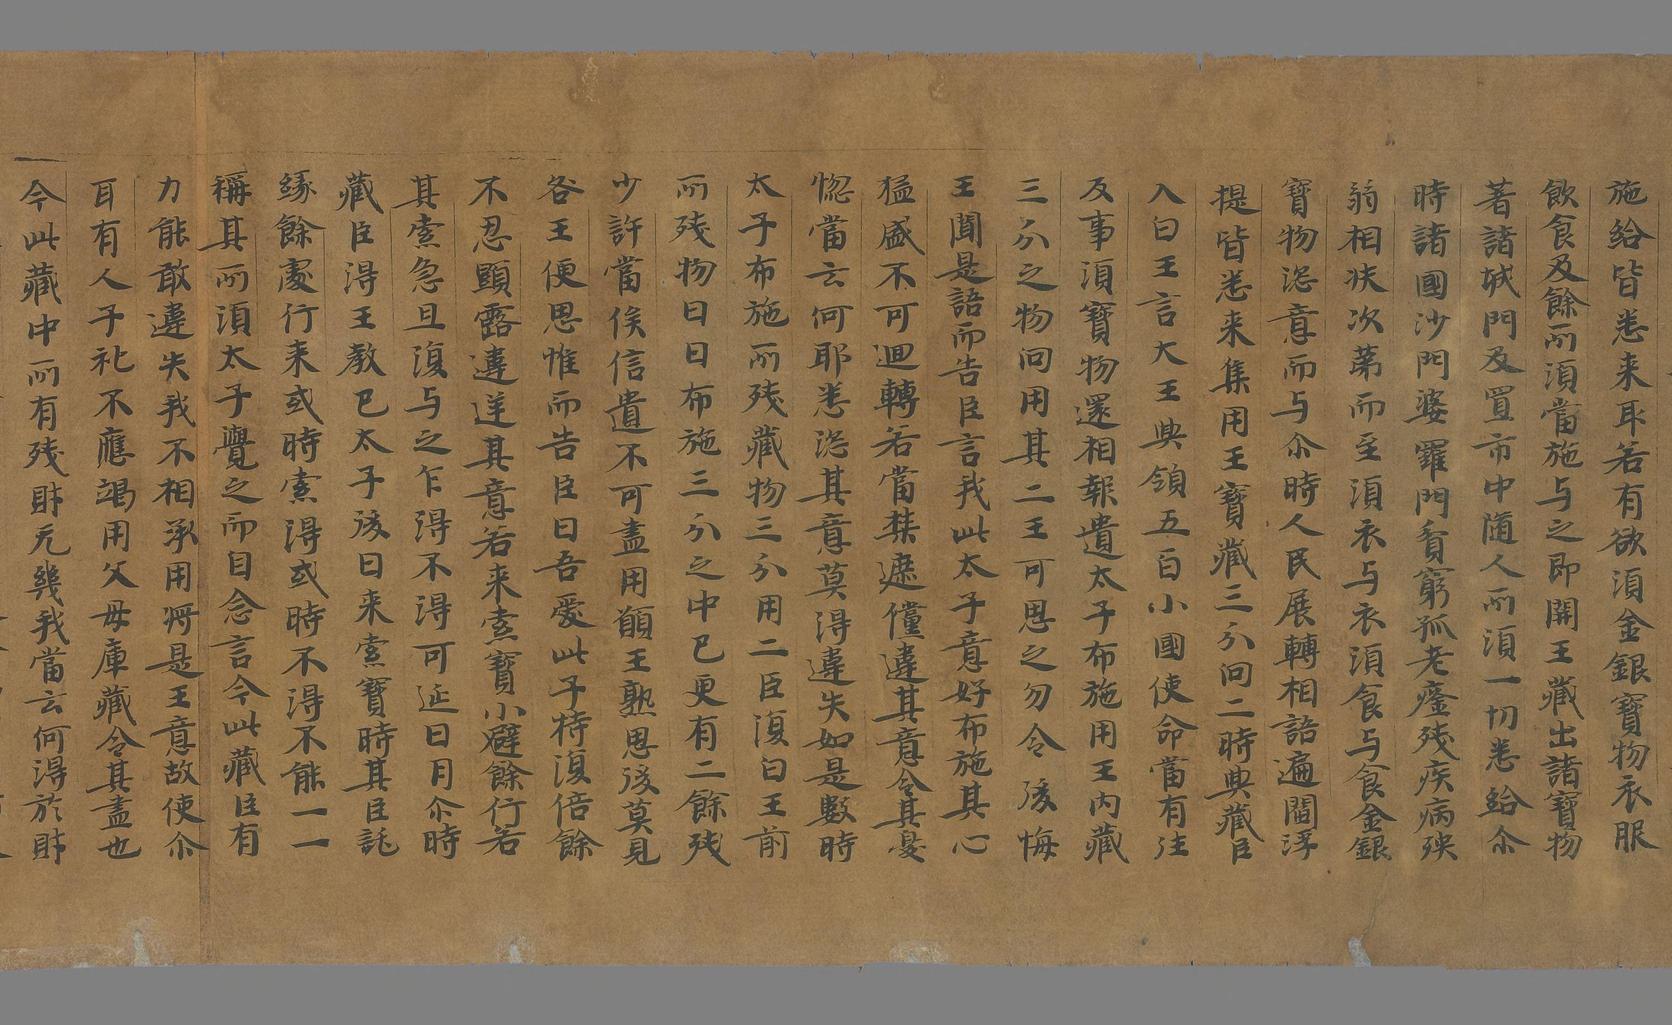 施給皆悉来取若有欲須金銀寶物衣服
飲食及餘所須當施与之即開王藏出諸寶物
著諸城門及置市中隨人所須一切悉給尒
時諸國沙門婆羅門貧窮孤老癃残疾病强
弱相扶次第而至須衣与衣須食与食金銀
寶物恣意而与尒時人民展轉相語遍閻浮
提皆悉来集用王寶藏三分向二時典藏臣
入白王言大王典領五百小國使命當有往
反事須寶物還相報遺太子布施用王内藏
三分之物向用其二王可思之勿令後悔
王聞是語而告臣言我此太子意好布施其心
猛盛不可迴轉若當禁遮儻違其意令其憂
惚當云何耶悉恣其意莫得違失如是數時
太子布施所残藏物三分用二臣復白王前
所残物日日布施三分之中已更有二餘残
少許當俟信遺不可盡用願王熟思後莫見
咎王便思惟而告臣曰吾愛此子特復倍餘
不忍顯露違逆其意若来索寶小避餘行若
其索急且復与之乍得不得可延日月尒時
藏臣得王教已太子後日来索寶時其臣託
緣餘處行来或時索得或時不得不能一一
稱其所須太子覺之而自念言今此藏臣有
力能敢違失我不相承用將是王意故使尒
耳有人子礼不應竭用父母庫藏令其盡也
今此藏中所有残財无幾我當云何得於財